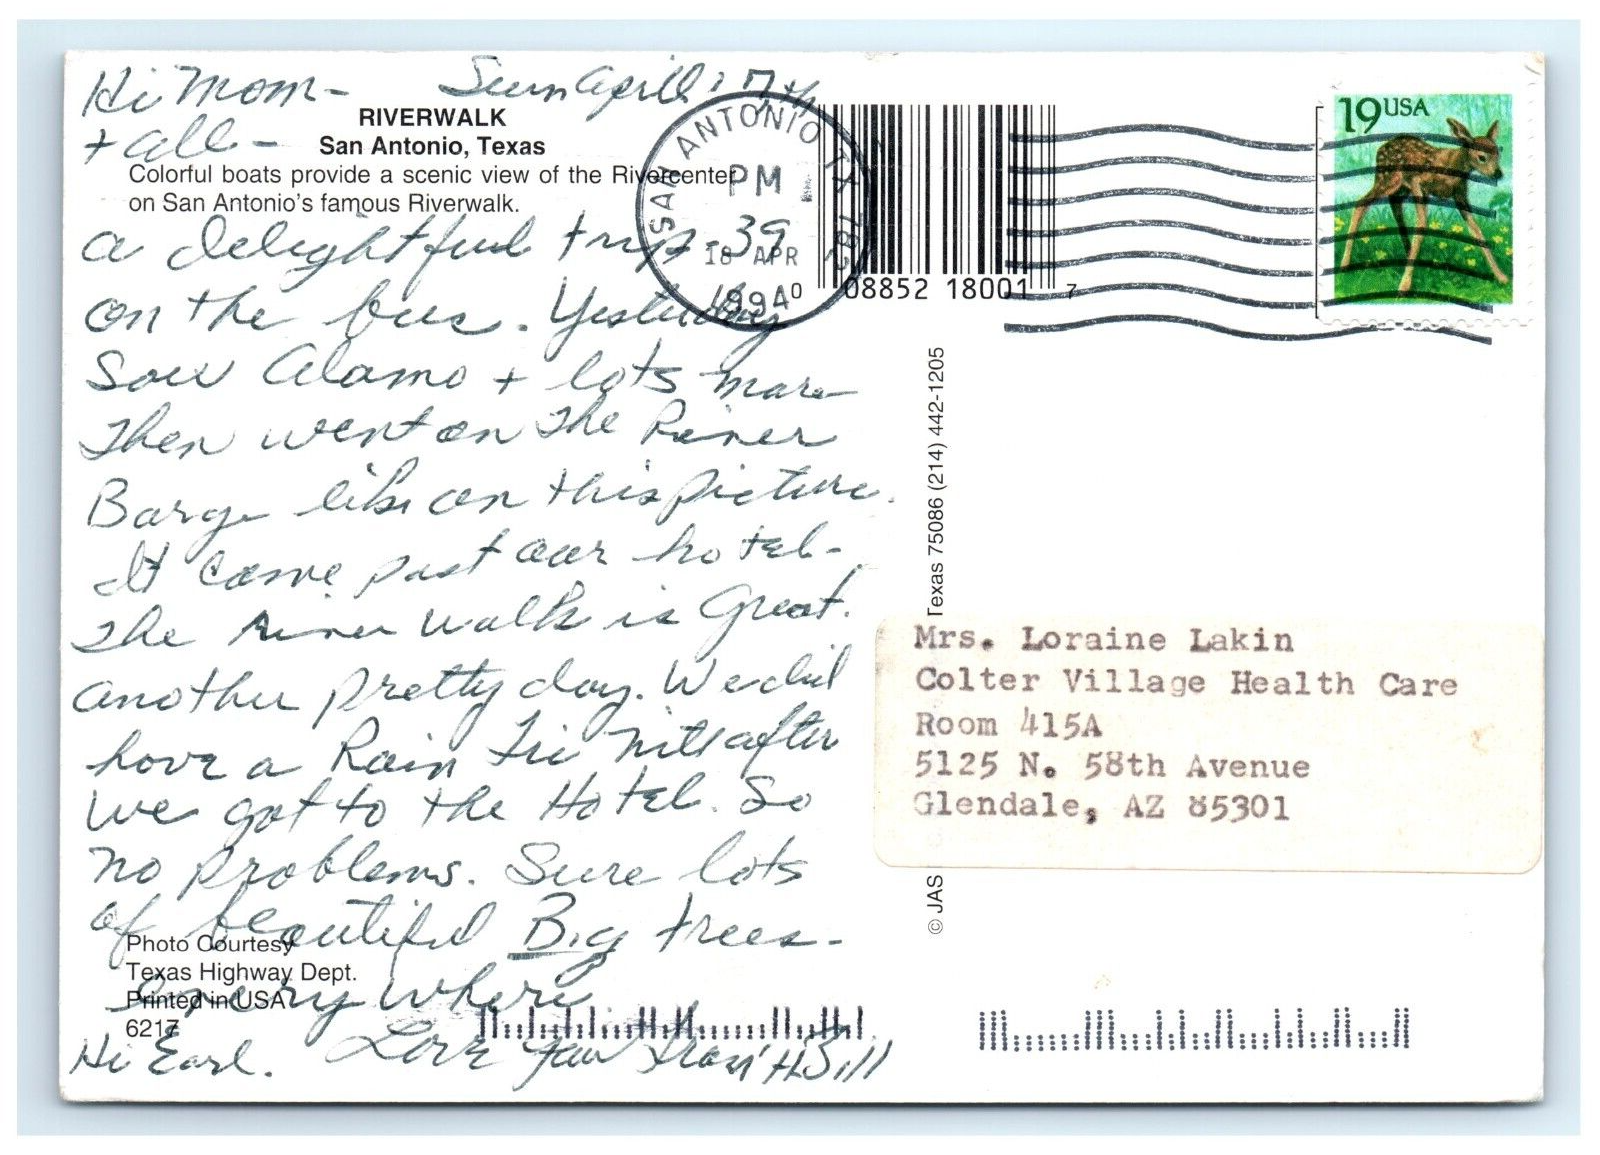 Hi Mom - Sun April 17th
+ all -
RIVERWALK
San Antonio, Texas
Colorful boats provide a scenic view of the Rivercenter
on San Antonio's famous Riverwalk.
a delightful trip - 39
on the bus. Yesterday
saw Alamo + lots more
Then went on the River
Barge like on this picture.
It came past our hotel -
The River Walk is Great.
another pretty day. We did
have a Rain Fri Nite after
we got to the Hotel. So
no problems. Sure lots
of beautiful Big trees -
every where
Hi Earl. Love + Bill
Photo Courtesy
Texas Highway Dept.
Printed in USA
6217
SAN ANTONIO TX 782
PM
18 APR
1994
0 08852 18001 7
19 USA
© JAS
Texas 75086 (214) 442-1205
Mrs. Loraine Lakin
Colter Village Health Care
Room 415A
5125 N. 58th Avenue
Glendale, AZ 85301